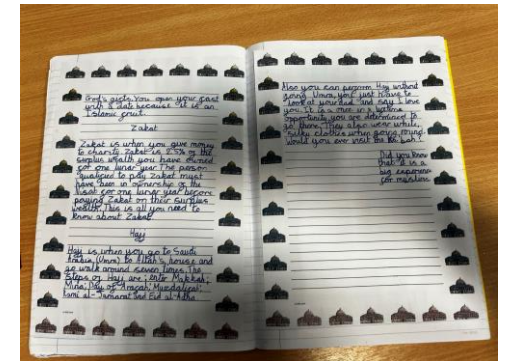 God's gifts. You open your fast
with a date because it is an
Islamic fruit.
Zakat
Zakat is when you give money
to charity. Zakat is 2.5% of the
surplus wealth you have owned
for one lunar year. The person
qualified to pay Zakat must
have been in ownership of the
Nisab for one lunar year before
paying Zakat on their surplus
wealth. This is all you need to
know about Zakat.
Hajj
Hajj is when you go to Saudi
Arabia, (Umra) to Allah's house and
go walk around seven times. The
steps of Hajj are; enter Makkah;
Mina; Day of Arafah; Muzdalifah;
Rami al-Jamarat and Eid al-Adha
Also you can perform Hajj without
going Umra, you just have to
look at your dad and say I love
you. It is a once in a lifetime
opportunity you are determined to
go there. They also wear white,
silky clothes when going round.
Would you ever visit the Ka'bah?
Did you know
that it is a
big experience
for muslims